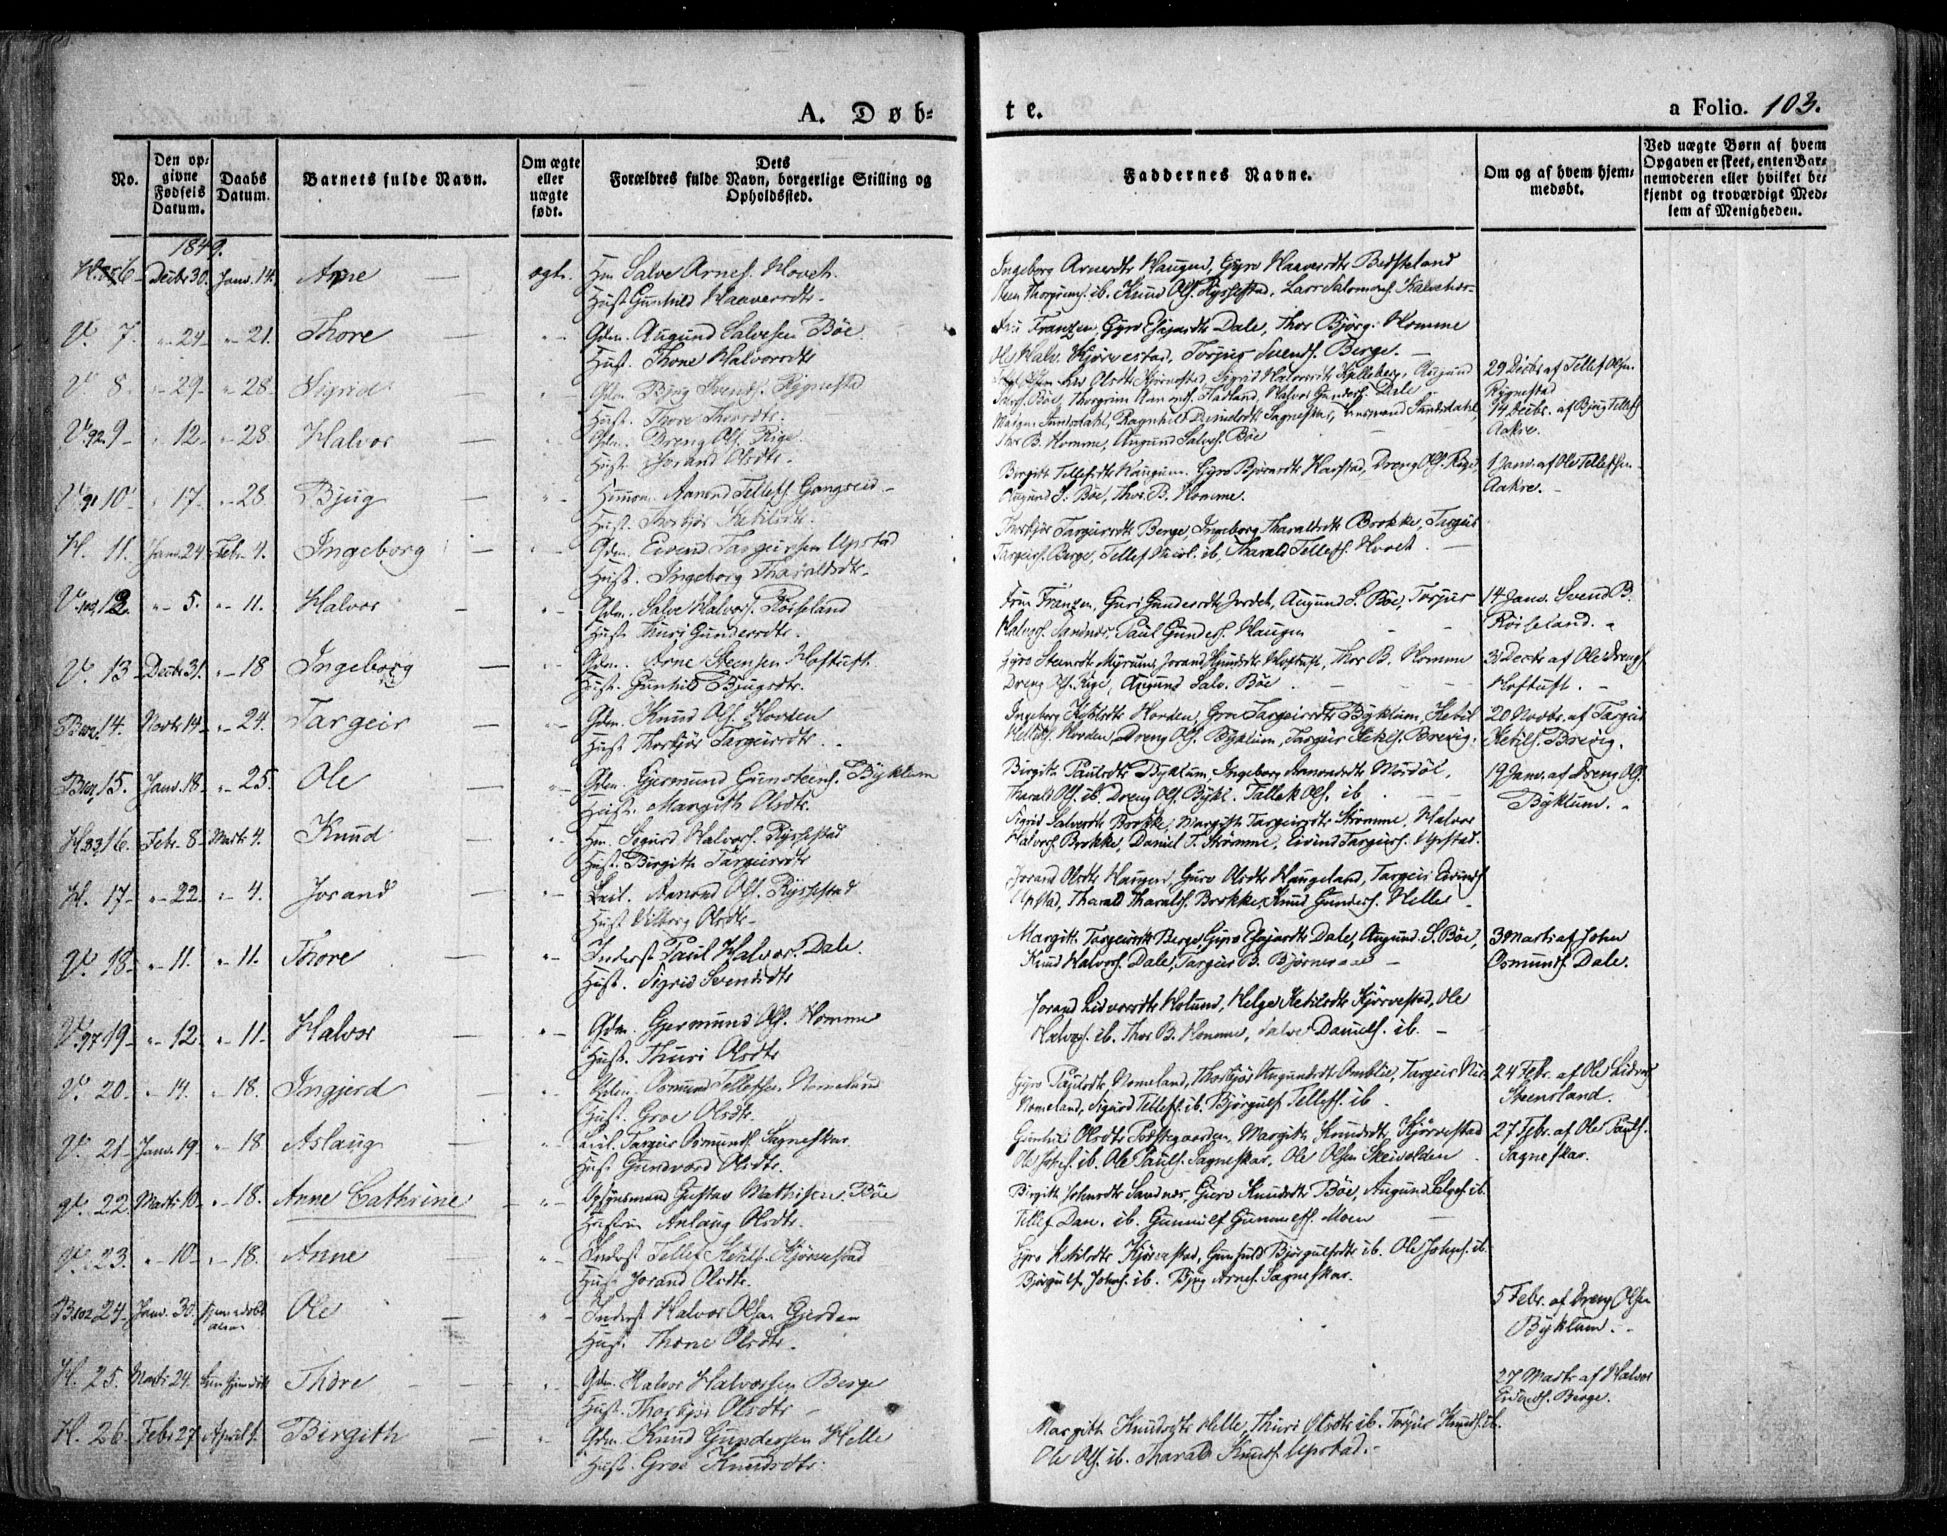 A. Døb-
te.
a Folio. 103.
No.
Den op-
givne
Fødsels
Datum.
Daabs
Datum.
Barnets fulde Navn.
Om ægte
eller
uægte
født.
Dets
Forældres fulde Navn, borgerlige Stilling og
Opholdssted.
Faddernes Navne.
Om og af hvem hjem-
medøbt.
Ved uægte Børn af hvem
Opgaven er skeet, enten Bar-
nemoderen eller hvilket be-
kjendt og troværdigt Med-
lem af Menigheden.
1849.
6 Decbr 30. Janv. 14. Arne — ægte. Hm Salve Arnes. Hovet.
Hust. Gunhild Haaversdtr.
Ingeborg Arnesdtr Haugen, Gyro Haaversdtr Besteland
Steen Thorgrims. ib. Knud Ols. Rysstad, Lars Salomons.
V. 7. "-24- "-21. Thore — "- Gdm. Augund Salvesen Bøe.
Hust. Thone Halvorsdtr
Franzen, Gyro Dale, Thor Bjørg. Homme
Ole Halv. Kjørvestad, Torjus Svends. Berge.
V. 8. "-29- "-28. Sigrid — "- Gdm. Bjug Svends. Rygnestad
Hust. Thore Thorsdtr.
Olsdtr Kjørvestad, Sigrid Halvorsdtr Kjelleberg, Augund
Salves. Bøe, Thorgrim Stadland, Halvor Gunders. Dale
29 Decbr af Tellef Olsen
Rygnestad
V. 92. 9 "12- "-28 Halvor — "- Gdm. Dreng Ols. Rige
Hust. Jorand Olsdtr.
Ragnhild Sagneskar, Sandsdahl,
Thor B. Homme, Augund Salves. Bøe
14 Decbr. af Bjug Tellefs
Aakre.
V. 91 10 "17- "-28 Bjug — "- Aanond Tellefs. Gangseid
Hust. Thorbjør Ketilsdtr.
Birgith Tellefsdtr Haugum. Gyro Bjørnsdtr Harstad, Dreng Ols. Rige,
Augund S. Bøe, Thor B. Homme.
1 Janv. af Ole Tellefsen
Aakre. -
H. 11. Janv. 24 Febr. 4. Ingeborg — "- Gdm. Eivind Targeirsen Upstad
Hust. Ingeborg Tharaldsdtr.
Thorbjør Targeirsdtr Berge, Ingeborg Tharaldsdtr Brokke, Targeir
Targeirs. Berge, Tellef Nicol. ib, Tharald Tellefs. Hovet
V. 103, 12. "-5. "-11. Halvor — "- Gdm. Salve Halvors. Røiseland
Hust. Thuri Gundersdtr.
Fru Franzen, Guri Gundersdtr Jordet, Augund S. Bøe, Torjus
Halvors. Sandnes, Paul Gunders. Haugen
14 Janv. Svend B.
Røiseland.
V. 13 Decbr 31. "-18 Ingeborg — "- Gdm. Arne Steensen Hoftuft.
Hust. Gunhild Bjugsdtr.
Gyro Steensdtr Myrum, Jorand Hoftuft, Thor B. Homme
Dreng Ols. Rige, Augund Salv. Bøe.
31 Decbr af Ole Drengs.
Hoftuft.
14. Novbr 14 "-24. Targeir — "- Gdm. Knud Ols. Hovden
Hust Thorbjør Targeirsdtr.
Ingeborg Ketilsdtr Hovden, Groe Targeirsdtr Byklum, Ketil
Hovden, Dreng Ols. Byklum, Targeir Ketils. Brevig.
20 Novbr. af Targeir
Ketils. Brevig.
15. Janv. 18. "-25. Ole — "- Gdm. Gjermund Gunsteins. Byklum
Hust. Margith Olsdtr.
Birgith Paulsdtr Byklum, Ingeborg Aanondsdtr Mosdøl,
Tharald Ols. ib. Dreng Ols. Bykl. Tallek Ols. ib
19 Janv. af Dreng Ols.
Byklum.
H. 33, 16. Febr. 8- Marts 4. Knud — "- Hm. Sigurd Halvors. Rysstad
Hust. Birgith Targeirsdtr
Sigrid Salvesdtr Brokke, Margith Targeirsdtr Strømme, Halvor
Halvors. Brokke, Daniel T. Strømme, Eivind Targeirs. Upstad.
H. 17 "-22. "-4. Jorand — "- Aanond Ols. Rysstad
Hust Vilborg Olsdtr
Jorand Olsdtr Haugen, Guro Olsdtr Haugeland, Targeir Eivinds.
Upstad, Tharald Tharalds. Brokke, Knud Gunders. Helle
V. 18 "-11. "-11. Thore — "- Inderst Paul Halvors. Dale.
Hust. Sigrid Svendsdtr
Margith Targeirsdtr Berge, Gyro Dale, Augund S. Bøe,
Knud Halvors. Dale, Targeir B. Bjørneraae
3 Marts af John
Osmunds. Dale.
V. 97 19- "-12. "-11- Halvor — "- Gdm. Gjermund Ols. Homme
Hust. Thuri Olsdtr
Jorand Lidvorsdtr Holund, Helge Ketilsdtr Kjørvestad, Ole
Halvors. ib. Thor B. Homme, Salve Daniels. ib.
V. 20. "14. "-18. Ingjerd — "- Gdm. Osmund Tellefsen Nomeland
Hust. Groe Olsdtr.
Gyro Nomeland, Thorbjør Augundsdtr Amblie, Targeir
Nomeland, Sigurd Tellefs. ib. Bjørgulf Tellefs. ib
24 Febr. af Ole
V. 21. Janv. 19. "-18. Aslaug — "- Targeir Osmunds. Sagneskar
Hust Gundvord Olsdtr.
Gunhild Olsdtr Præstegaarden, Margith Knudsdtr Kjørvestad
Ole ib. Ole Pauls. Sagneskar, Ole Olsen Skeivolden
27 Febr. af Ole Pauls.
Sagneskar.
V. 22. Marts 10- "-18. Anne Cathrine — "- Opsynsmand Gustav Mathisen Bøe
Hustru Aslaug Olsdtr.
Birgith Johnsdtr Sandnes, Gjero Knudsdtr Bøe, Augund ib.
Tellef Dan. ib. Gunnulf Gunnulfs. Moen
V. 23. "-10- "-18. Anne — "- Inderst Tellef Ketils. Kjørvestad
Hust Jorand Olsdtr.
Gyro Ketilsdtr Kjørvestad, Gunhild Bjørgulfsdtr ib. Ole Johns. ib.
Bjørgulf Johns. ib. Bjug Arnes. Sagneskar.
24. Janv. 30. hjemmedøbt
alene Ole — "- Inderst Halvor Olsen Gjerden
Hust. Thone Olsdtr.
5 Febr. af Dreng Olsen
Byklum.
H. 25. Marts 24. kun hjemdøbt Thore — "- Gdm. Halvor Halvorsen Berge
Hust. Thorbjør Olsdtr
27 Marts af Halvor
Eivinds. Berge.
H. 26. Febr 27 April 1. Birgith — "- Gdm. Knud Gundersen Helle
Hust. Groe Knudsdtr.
Margith Knudsdtr Helle, Thuri Olsdtr ib. Torjus Knuds. ib.
Ole Ols. ib. Tharald Knuds. Upstad.